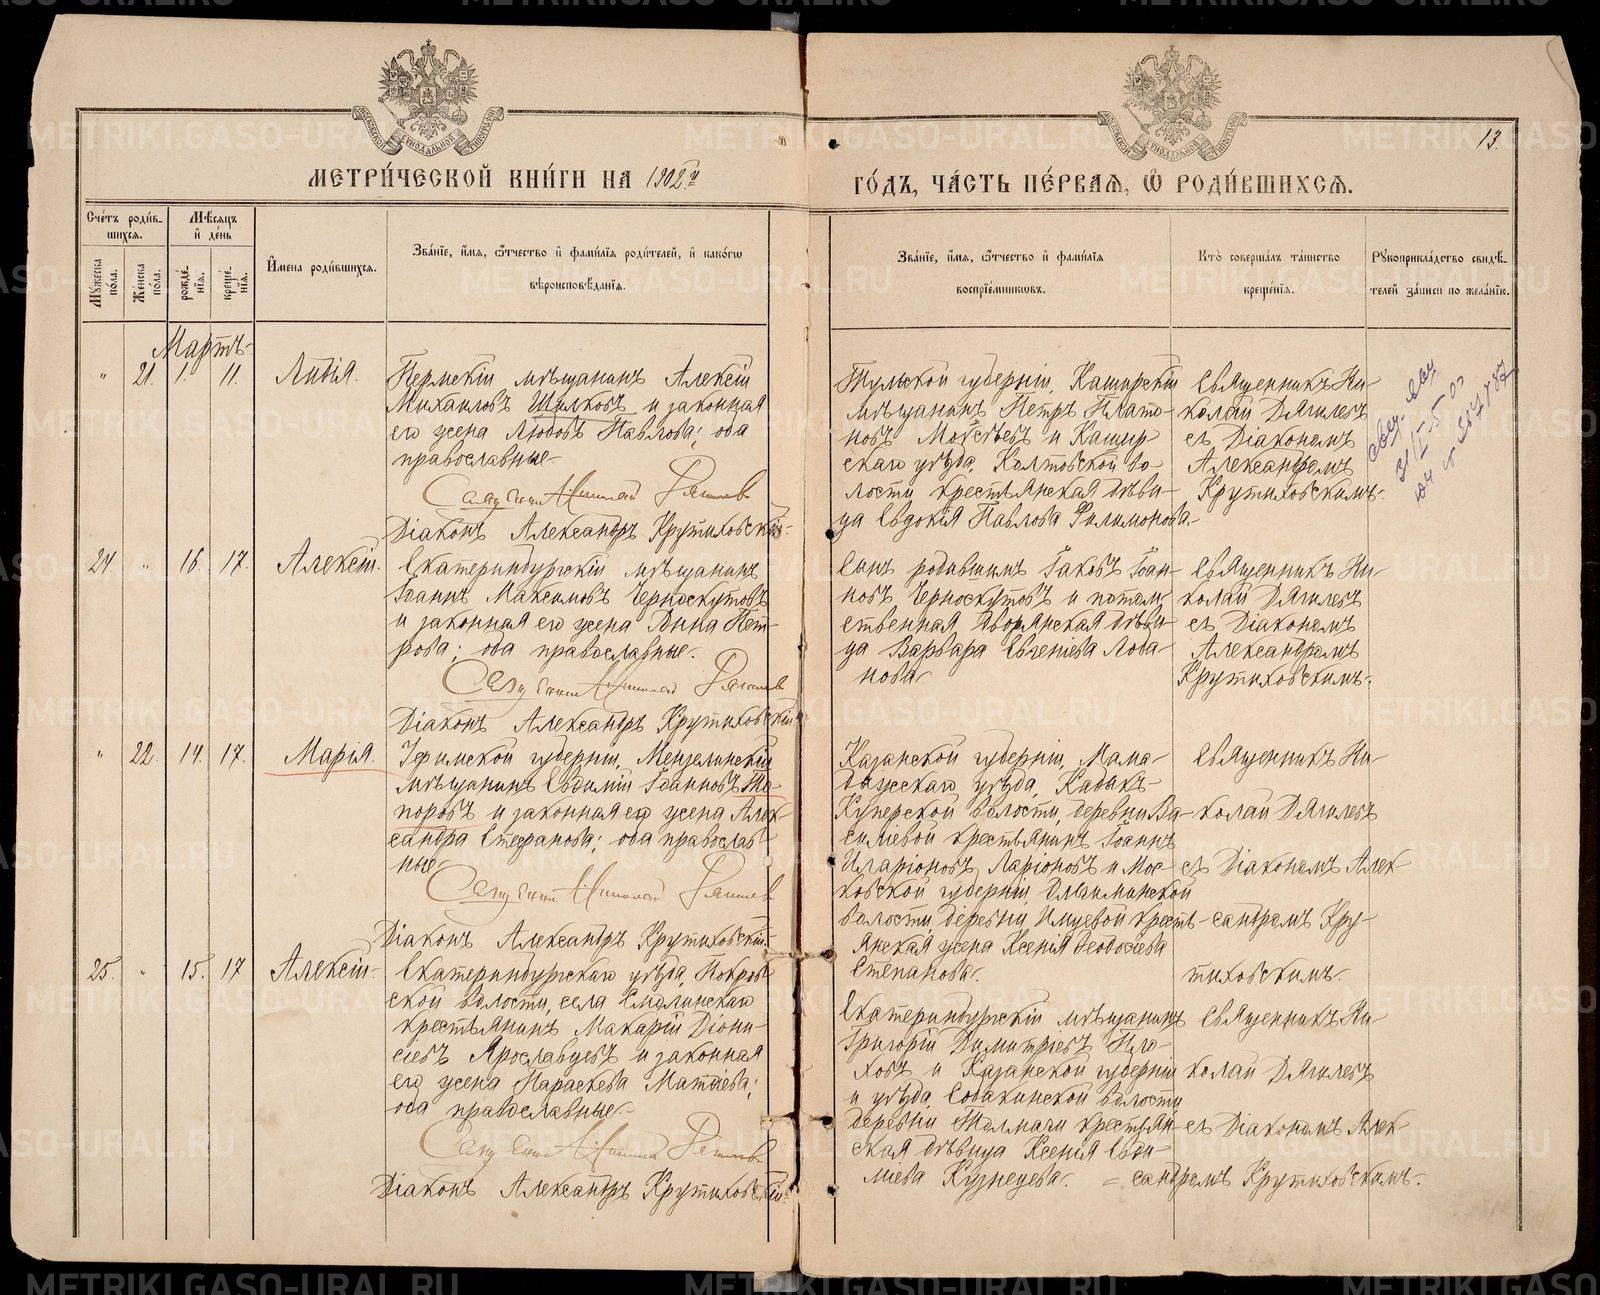 13.
МЕТРИ́ЧЕСКОЙ КНИ́ГИ НА 1902й
ГО́ДЪ, ЧА́СТЬ ПЕ́РВАЯ, Ѿ РОДИ́ВШИХСЯ.
Сче́тъ роди́вшихся.
Му́жеска по́ла.
Же́нска по́ла.
Мѣ́сяцъ и де́нь
рожде́нія.
креще́нія.
И҆мена роди́вшихся.
Зва́нїе, и҆́мя, ѻ҆́тчество и҆ фами́лїя роди́телей, и҆ како́гѡ
вѣроисповѣ́данїя.
Зва́нїе, и҆́мя, ѻ҆́тчество и҆ фами́лїя
воспрїе́мниковъ.
Кто̀ соверша́лъ та́инство
креще́нїя.
Рꙋкоприкла́дство свидѣ́-
телей за́писи по жела́нїю.
Мартъ
" 21. 1. 11. Лидія.
Пермскій мѣщанинъ Алексій
Михаиловъ Шилковъ и законная
его жена Любовь Павлова; оба
православные
Священникъ Николай Дягилевъ
Діаконъ Александръ Крутиховскій
Тульской губерніи, Каширскій
мѣщанинъ Петръ Плато-
новъ Мокѣевъ и Кашир-
скаго уѣзда, Колтовской во-
лости, крестьянская дѣви-
ца Евдокія Павлова Филимонова
Священникъ Ни-
колай Дягилевъ
съ Діакономъ
Александромъ
Крутиховскимъ.
24 " 16. 17. Алексій.
Екатеринбургскій мѣщанинъ
Іоаннъ Максимовъ Черноскутовъ
и законная его жена Анна Пет-
рова; оба православные.
Священникъ Николай Дягилевъ
Діаконъ Александръ Крутиховскій
Сынъ родившимъ Іаковъ Іоан-
новъ Черноскутовъ и потом-
ственная дворянская дѣви-
ца Варвара Евгеніева Лоба-
нова
Священникъ Ни-
колай Дягилевъ
съ Діакономъ
Александромъ
Крутиховскимъ.
" 22. 14. 17. Марія.
Уфимской губерніи, Мензелинскій
мѣщанинъ Евдимій Іоанновъ То-
поровъ и законная его жена Алек-
сандра Стефанова; оба православ-
ные
Священникъ Николай Дягилевъ
Діаконъ Александръ Крутиховскій
Казанской губерніи, Мама-
дышскаго уѣзда, Кабыкъ-
Куперской волости, деревни Ва-
сильевой крестьянинъ Іоаннъ
Иларіоновъ Ларіоновъ и Мос-
ковской губерніи,
волости, деревни крестъ-
янская жена Ксенія Ѳеодосіева
Степанова.
Священникъ Ни-
колай Дягилевъ
съ Діакономъ Алек-
сандромъ Кру-
тиховскимъ.
25. " 15. 17 Алексій
Екатеринбургскаго уѣзда, Покров-
ской волости, села Смолинскаго
крестьянинъ Макарій Діони-
сіевъ Ярославцевъ и законная
его жена Параскева Матѳіева;
оба православные.
Священникъ Николай Дягилевъ
Діаконъ Александръ Крутиховскій
Екатеринбургскій мѣщанинъ
Григорій Димитріевъ Пло-
ховъ и Казанской губерніи
и уѣзда, Собакинской волости
деревни Толмачи крестьян-
ская дѣвица Ксенія Евди-
міева Кузнецова.
Священникъ Ни-
колай Дягилевъ
съ Діакономъ Алек-
сандромъ Крутиховскимъ.
METRIKI.GASO-URAL.RU